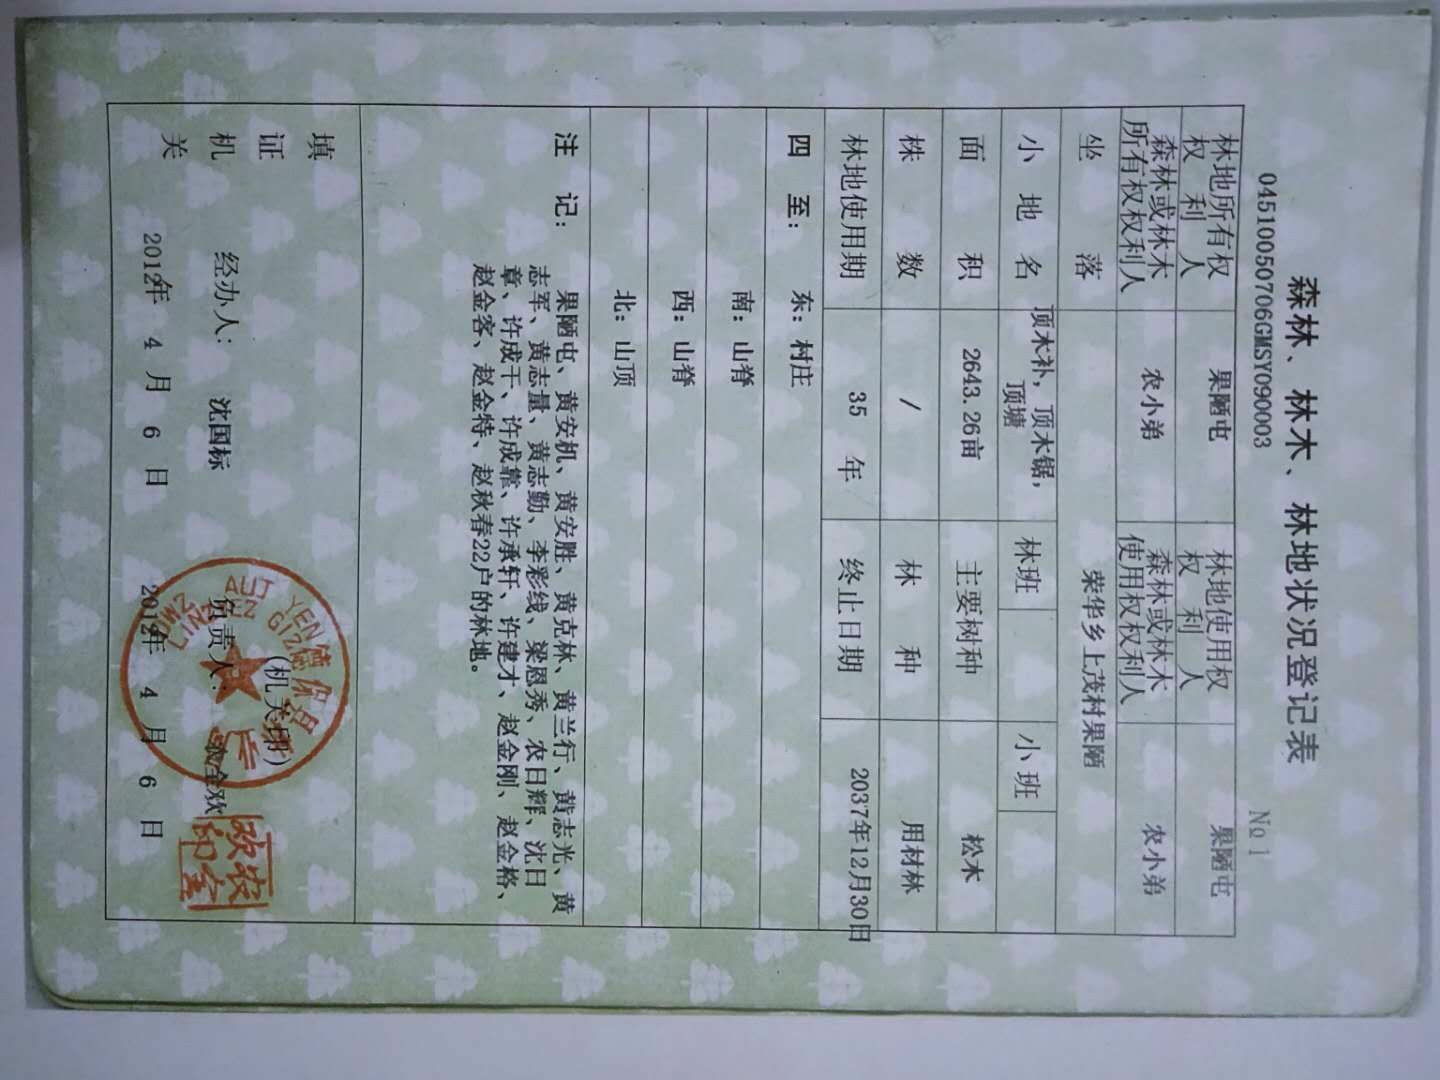 森林、林木、林地状况登记表
0451005070​6GMSY090003
No 1
林地所有权权利人 果陋屯 林地使用权权利人 果陋屯
森林或林木所有权权利人 农小弟 森林或林木使用权权利人 农小弟
坐落 荣华乡上茂村果陋
小地名 顶木补，顶木锯，顶塘 林班 小班
面积 2643.26亩 主要树种 松木
株数 / 林种 用材林
林地使用期 35 年 终止日期 2037年12月30日
四至： 东：村庄
南：山脊
西：山脊
北：山顶
注记： 果陋屯、黄安机、黄安胜、黄克林、黄兰行、黄志光、黄
志军、黄志量、黄志勤、李彩线、梁恩秀、农日辉、沈日
章、许成干、许成靠、许承轩、许建才、赵金刚、赵金格、
赵金客、赵金特、赵秋春22户的林地。
填证机关
(机关印)
经办人： 沈国标 负责人： 农金欢
2012年 4 月 6 日 2012年 4 月 6 日
农金欢印